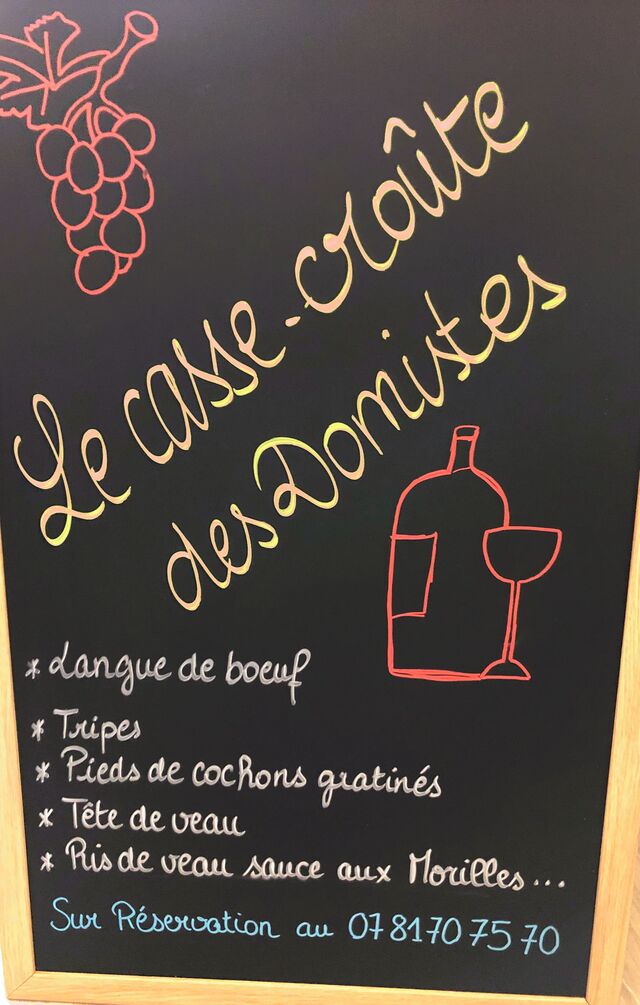 Le casse-croûte
des Domistes
* Langue de boeuf
* Tripes
* Pieds de cochons gratinés
* Tête de veau
* Ris de veau sauce aux Morilles...
Sur Réservation au 07 81 70 75 70